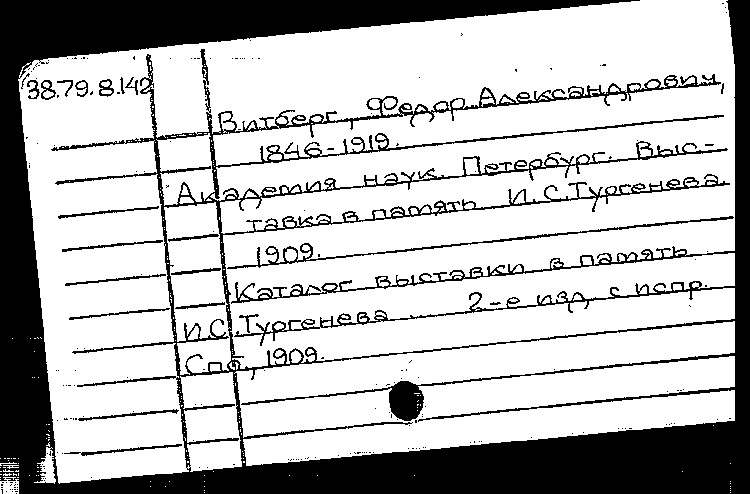 38.79.8.142
Витберг, Федор Александрович,
1846-1919.
Академия наук. Петербург. Выс-
тавка в память И.С.Тургенева.
1909.
Каталог выставки в память
И.С.Тургенева ... 2-е изд. с испр.
Спб., 1909.